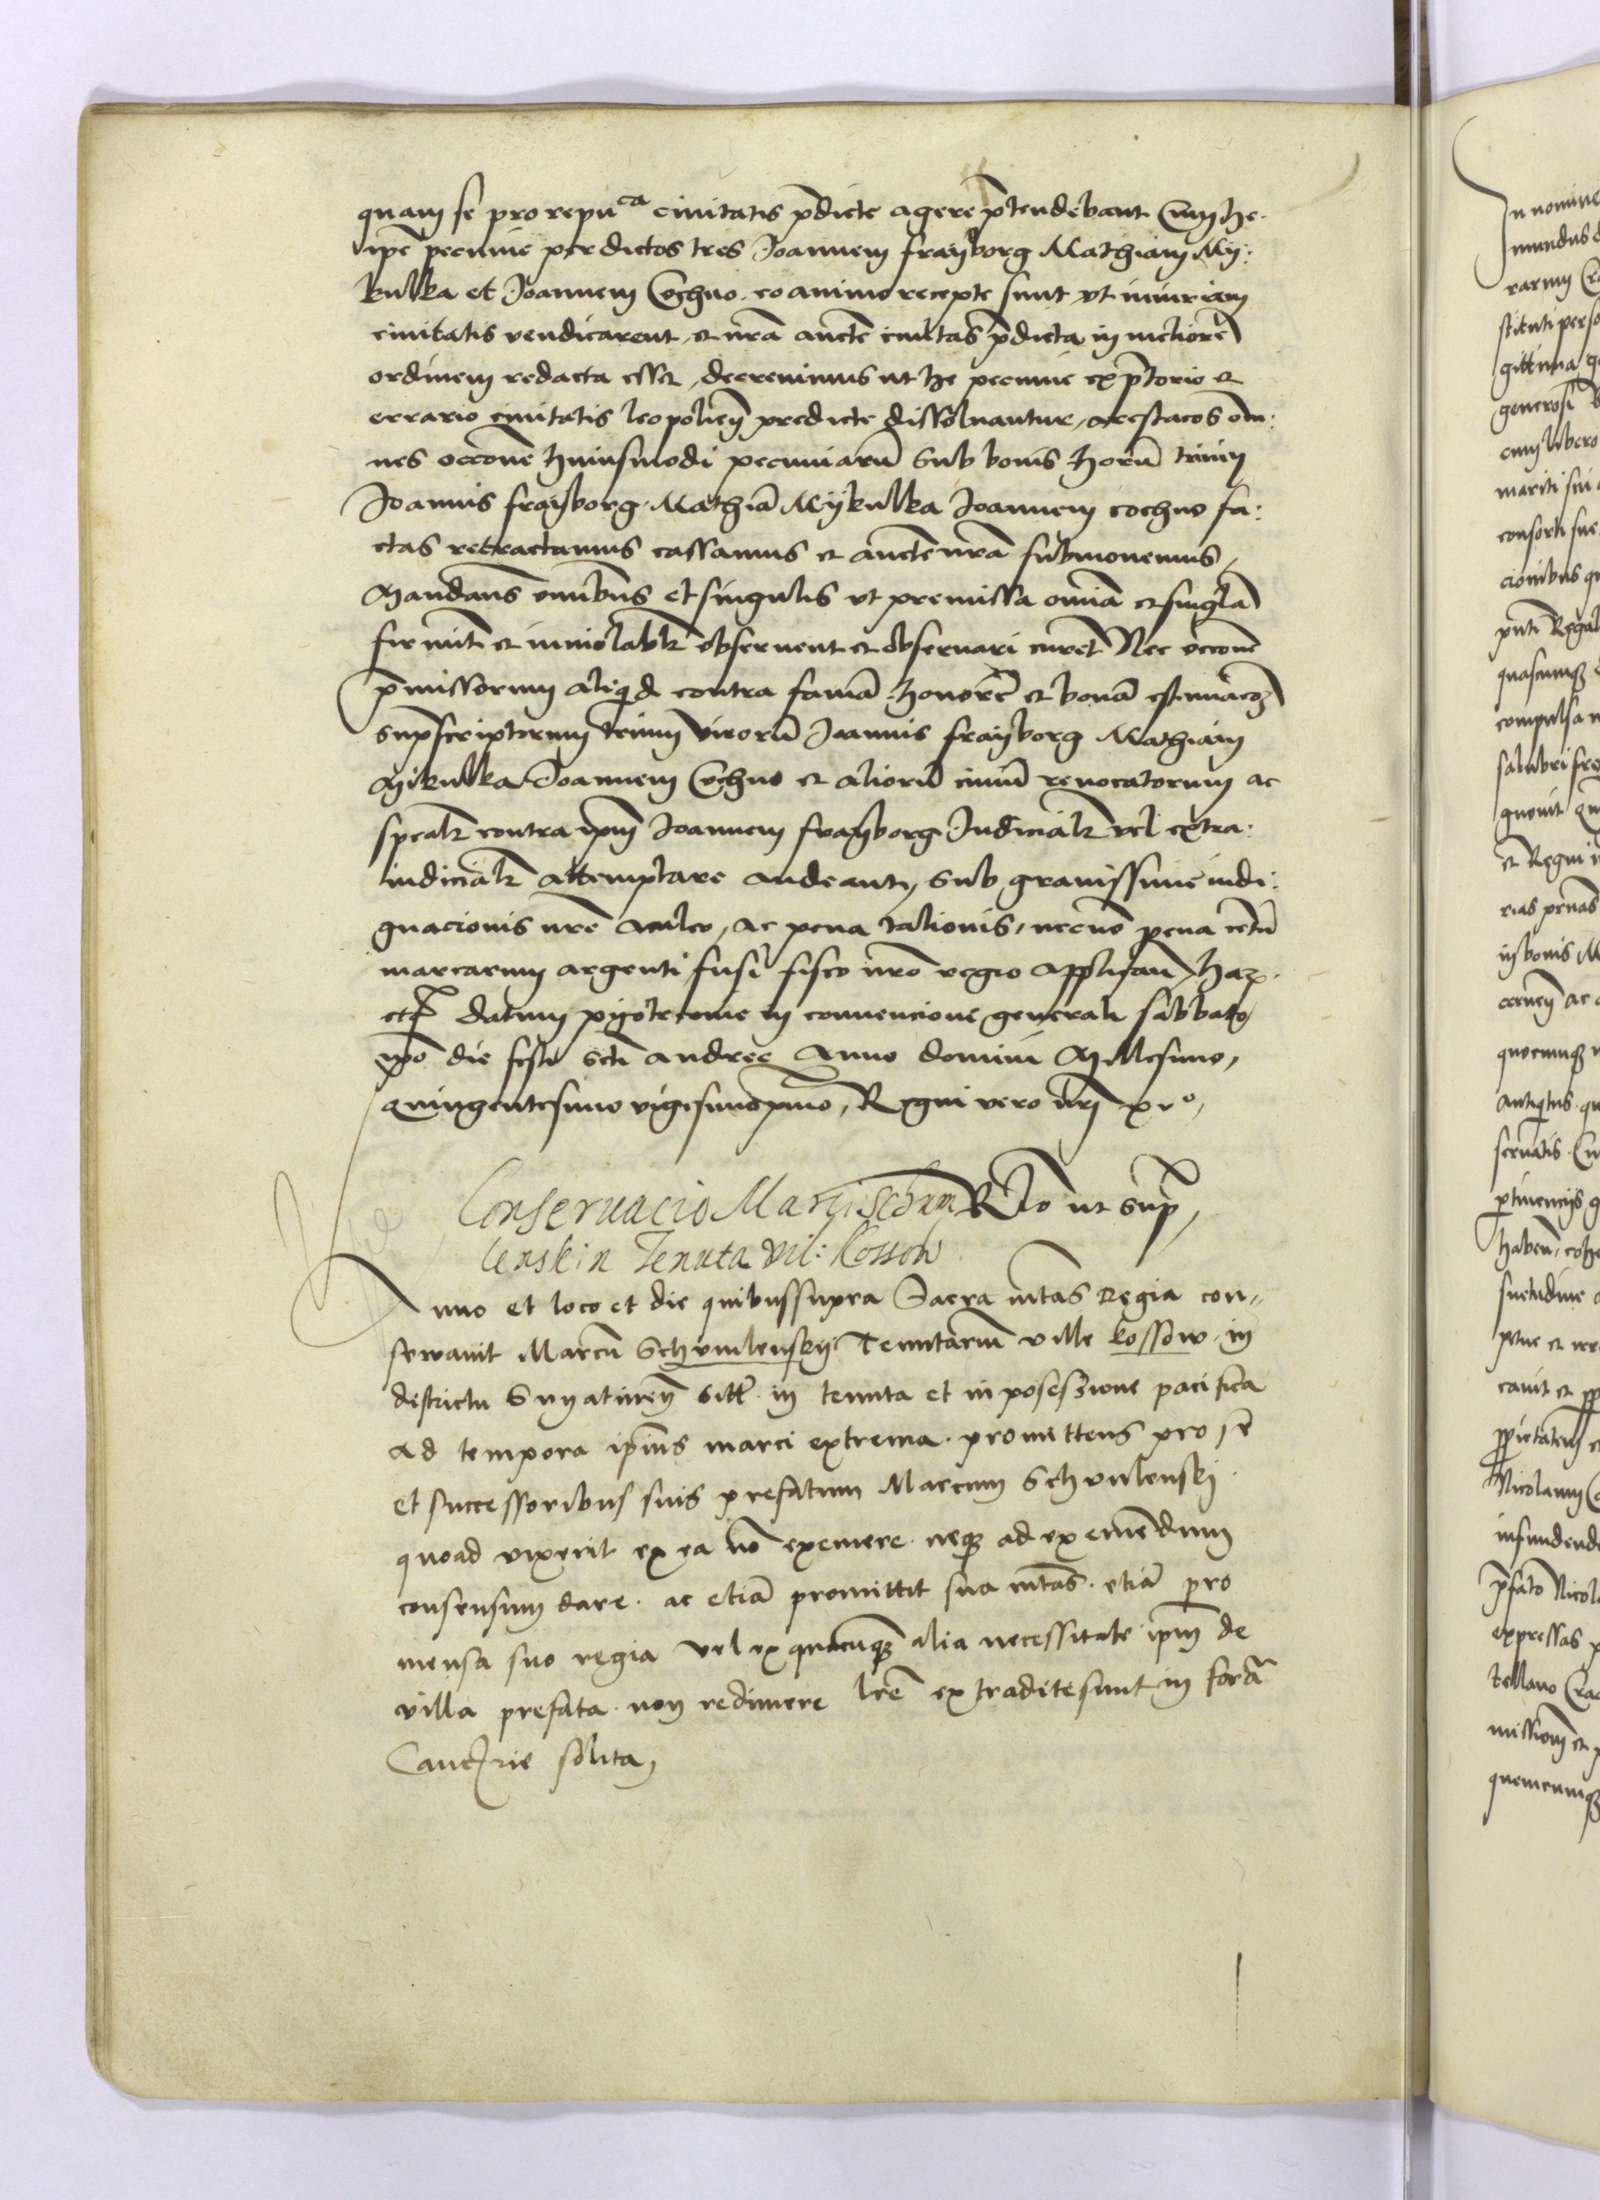 quam se pro repu^ca civitatis p̄dicte agere p̄tendebant Cum he
ip̄e pecunie per dictos tres Joannem frayborg Mathiam My:
kulka et Joannem Cochno eo animo recepte sunt vt iniuriam
civitatis vendicarent et nr̄a aucte civitas p̄dicta in meliorē
ordinem redacta esset, decrevimus ut he pecunie ex p̄torio et
errario civitatis leopolien̄ predicte dissolvantur, arestacōs om:
nes occōne huiusmodi pecuniarū sub bonis horū trium
Joannis frayborg Mathiā Mykulka Joannem cochno fa:
ctas retractamus cassamus et aucte nr̄a submovemus,
Mandans om̄ibus et singulis vt premissa omīa et singl̄a
firmit̄ et inviolabilr̄ observent et observari curēt Nec occōne
p̄missorum aliqd contra famā honorē et bonā estimacōȝ
sup̄scriptorum trium virorū Joannis frayborg Mathiam
Mikulka Joannem Cochno et aliorū civiū revocatorum ac
spealr̄ contra ip̄m Joannem frayborg Judicialr̄ vel extra:
iudicialr̄ attemptare audeant, sub gravissime indi:
gnacionis nr̄e aculeo, ac pena talionis, necnō pena centū
marcarum argenti fusi fisco nr̄o regio applicān, haȝ
etc̄ datum pijotrcovie in convencione generali sabbato
ip̄o die festi sc̄ti andree Anno domini Millesimo,
quingentesimo vigesimoprimo, Regni vero nr̄i xv^o,
Conservacio Marci Schum R̄lō ut sup̄,
lenski in Tenuta vil: Kossow
Anno et loco et die quibus supra Sacra mtas Regia con„
servavit Marcū Schvmlenskij Tenutariū ville kossow in
districtu Snyatineñ sitt̄ in tenuta et in posessione pacifica
ad tempora ip̄ius marci extrema promittens pro se
et successoribus suis prefatum Marcum Schvmlenskj
quoad vixerit ex ea nō eximere neqȝ ad exemēdum
consensum dare ac etiā promittit sua mtas etiā pro
mensa suo regia vel ex quacuqȝ alia necessitate ip̄m de
villa prefata non redimere lr̄e extradite sunt in forā
Cancrie solita,